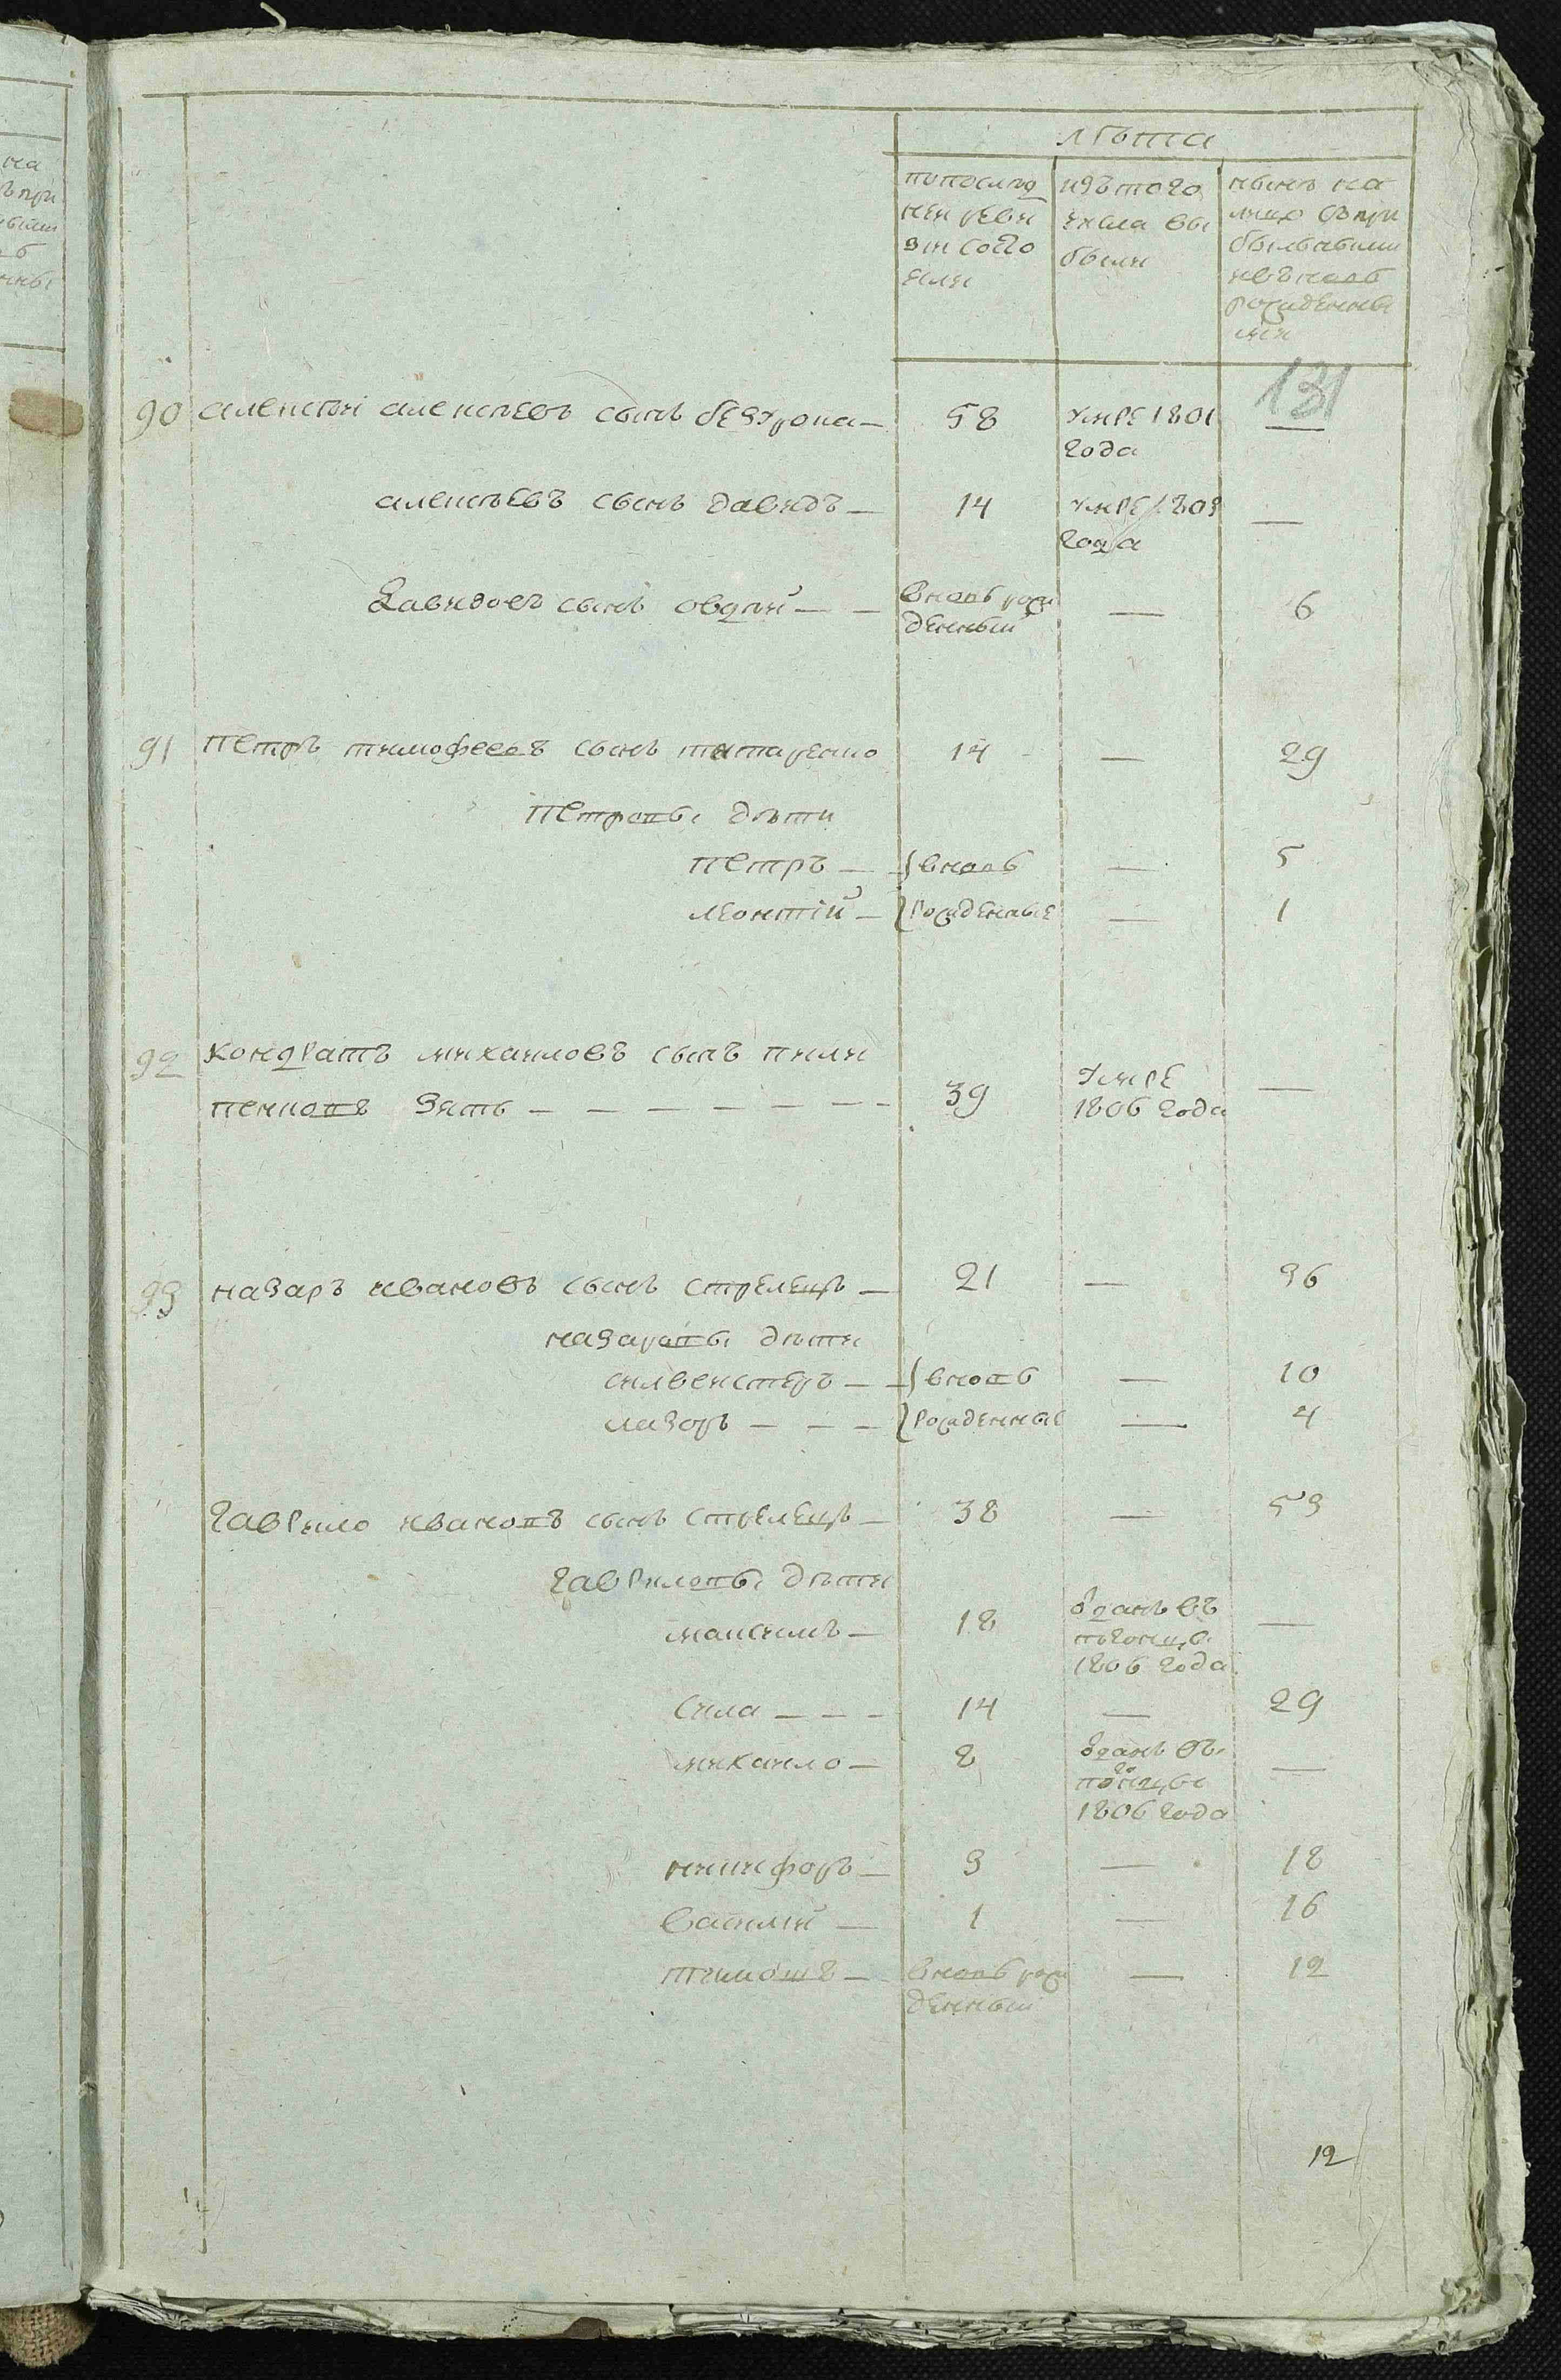 лѣта
попослѣд
ней реви
зіи состо
яли
изъ того
числа вы
были
нынѣ на
лицо съ при
былымии
ивновь
рожденны
ми
131
90 алексѣй алексѣевъ сынъ безурока — 58 умре 1801 —
года
алексѣевъ сынъ давидъ — 14 умре 1809 —
года
давидовъ сынъ овдѣй — — вновь рож — 6
денный
91 петръ тимофеевъ сынъ титаренко 14 — 29
петровы дѣти
петръ — вновь — 5
леонтій — рожденные — 1
92 кондратъ михаиловъ сынъ пили
пенковъ зять — — — — — — — 39 умре —
1806 года
93 назаръ ивановъ сынъ стрелецъ — 21 — 36
назаровы дѣти
силвенстеръ — — вновь — 10
лазоръ — — — рожденные — 4
гаврило ивановъ сынъ стрелецъ — 38 — 53
гавриловы дѣти
максимъ — 18 зданъ въ —
погонцы
1806 года
сила — — — 14 — 29
михаило — 8 зданъ въ —
погонцы
1806 года
никифоръ — 3 — 18
василий — 1 — 16
тимошъ — вновь рож — 12
денный
12